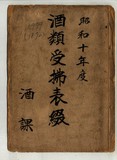 昭和十年度
酒類受拂表綴
酒課